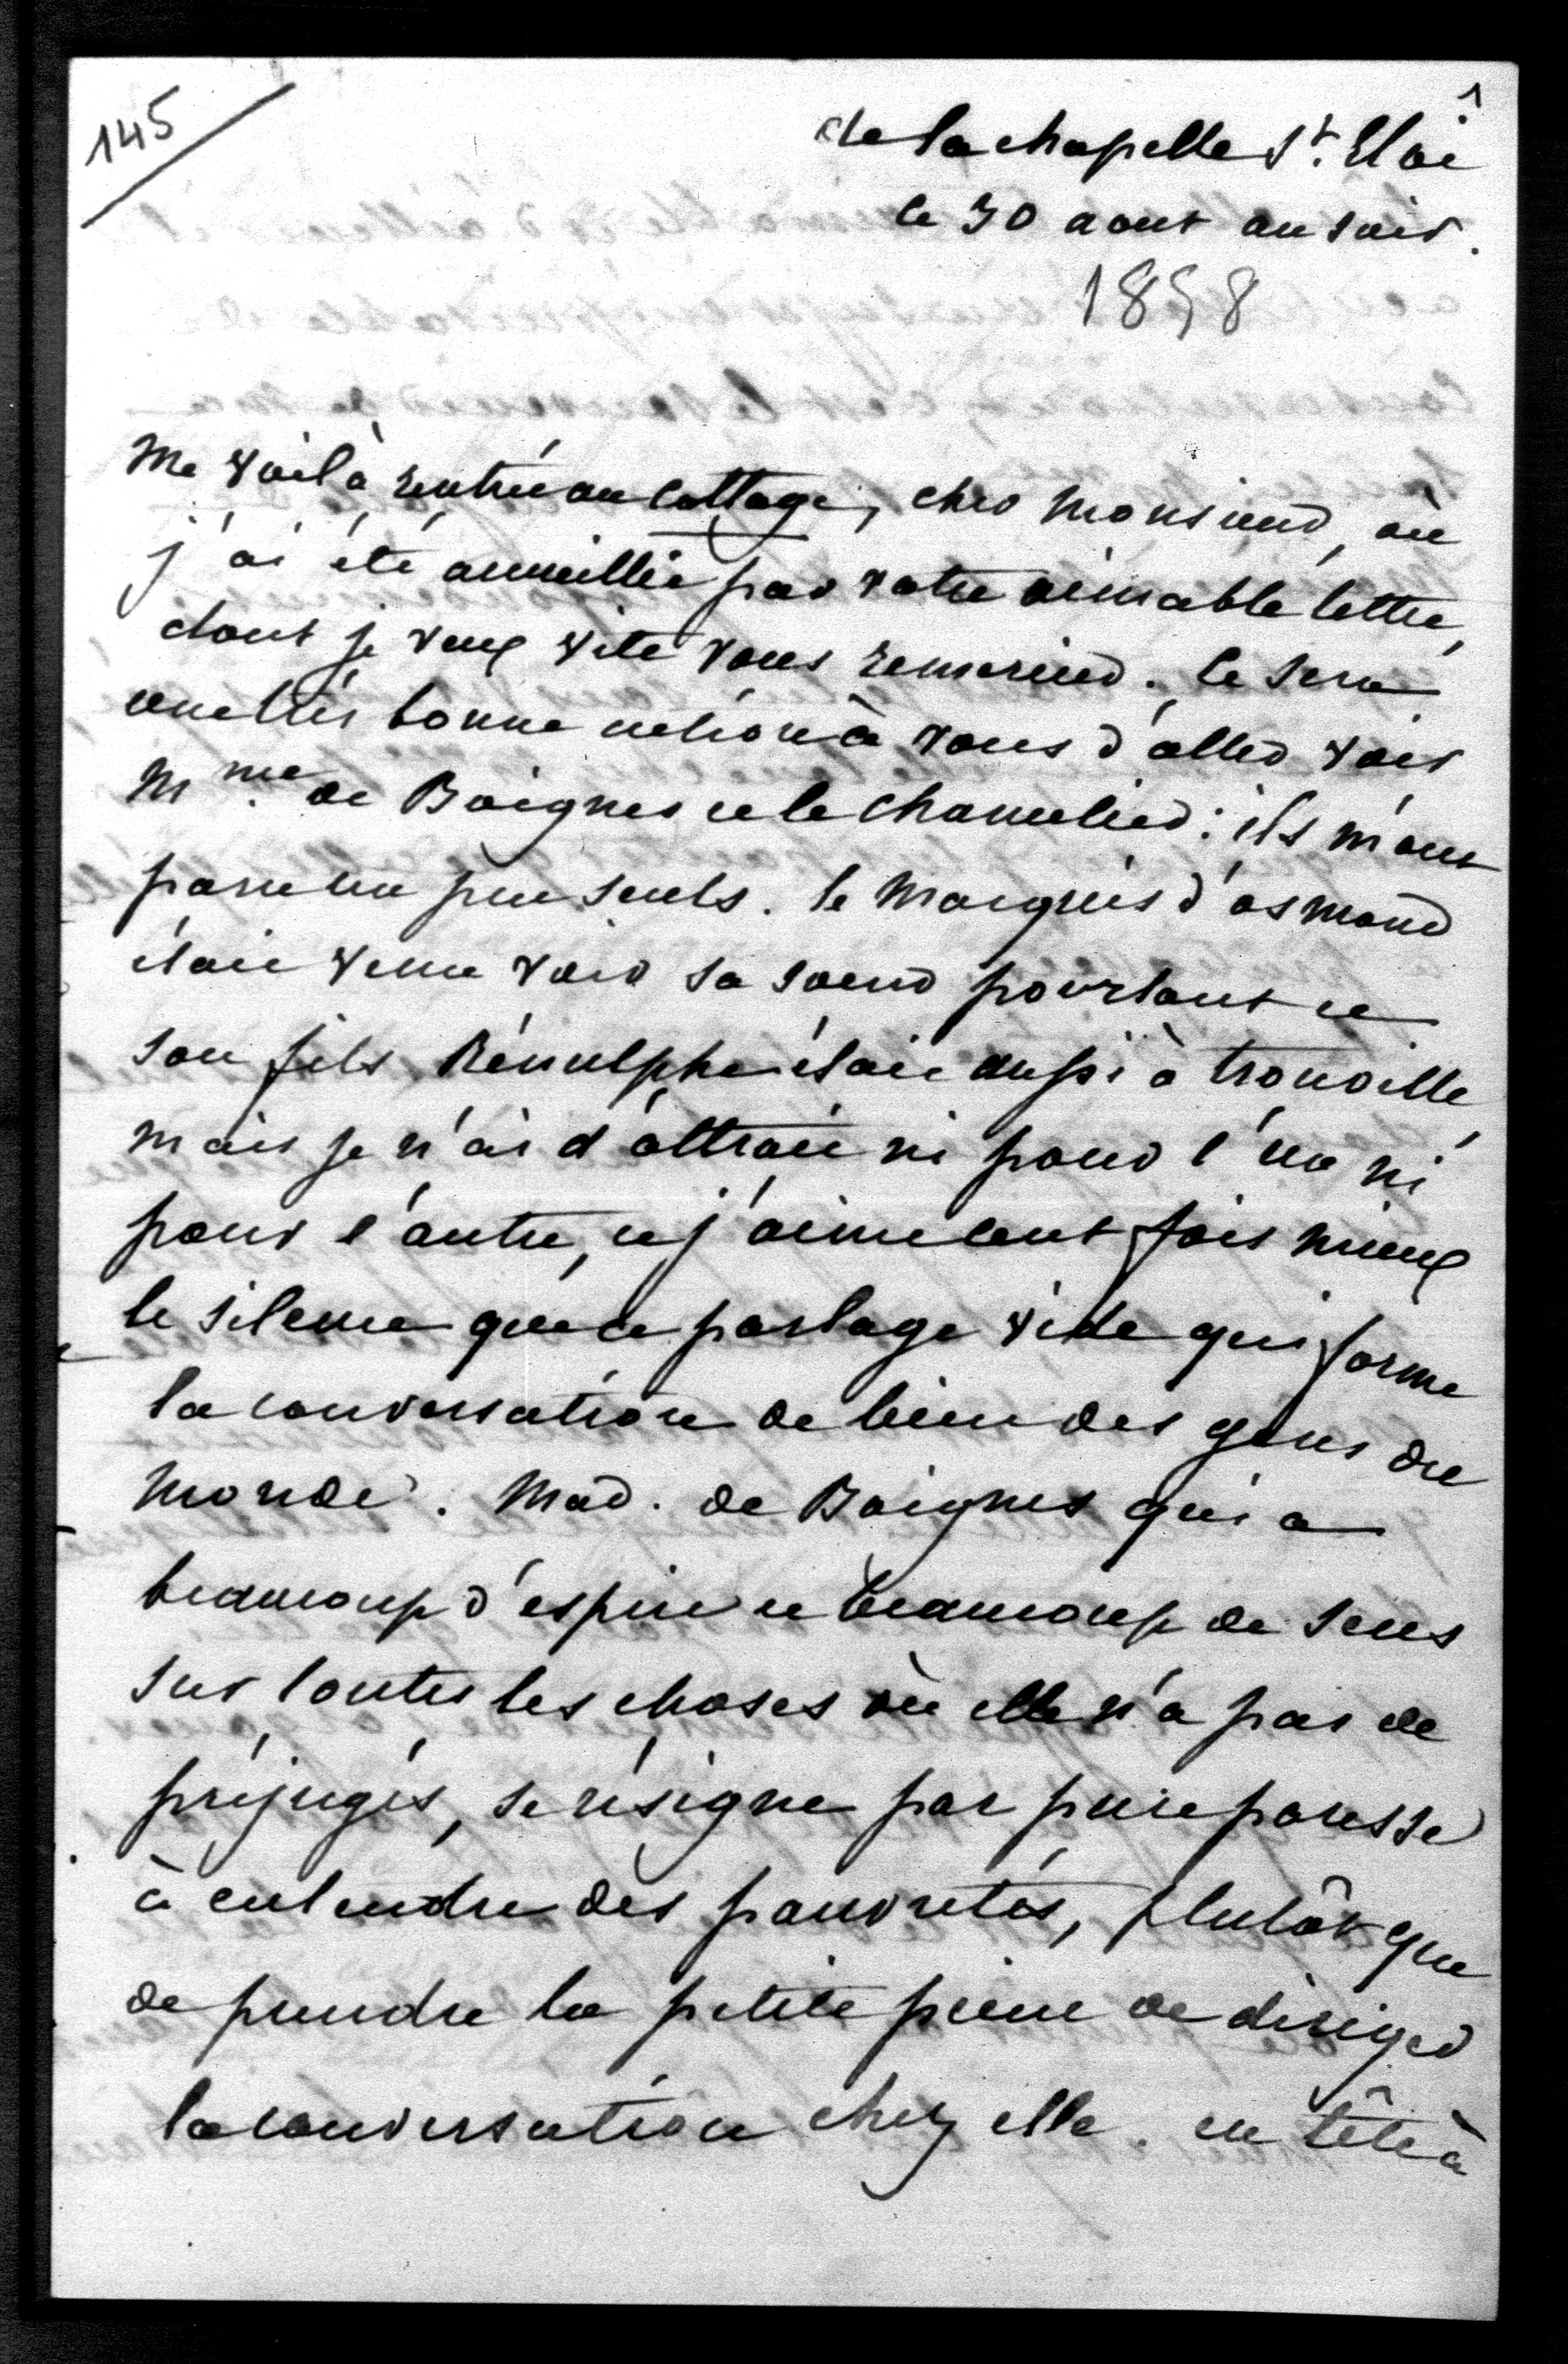 145
1
de la chapelle St. Eloi
le 30 aout au soir.
1858
Me voilà rentrée au cottage, cher Monsieur, où
j'ai été accueillie par votre aimable lettre,
dont je veux vite vous remercier. Ce sera
une très bonne action à vous d'aller voir
Mme de Boignes et le Chancelier : ils m'ont
paru un peu seuls. le Marquis d'osmond
était venu voir sa soeur pourtant et
son fils Rénulphe était aussi à trouville,
mais je n'ai d'attrait ni pour l'un ni
pour l'autre, et j'aime cent fois mieux
le silence que ce parlage vide qui forme
la conversation de bien des gens du
monde. Mad. de Boignes qui a
beaucoup d'esprit et beaucoup de sens
sur toutes les choses où elle n'a pas de
préjugés, se résigne par pure paresse
à entendre des pauvretés, plutôt que
de prendre la petite peine de diriger
la conversation chez elle. en tête à